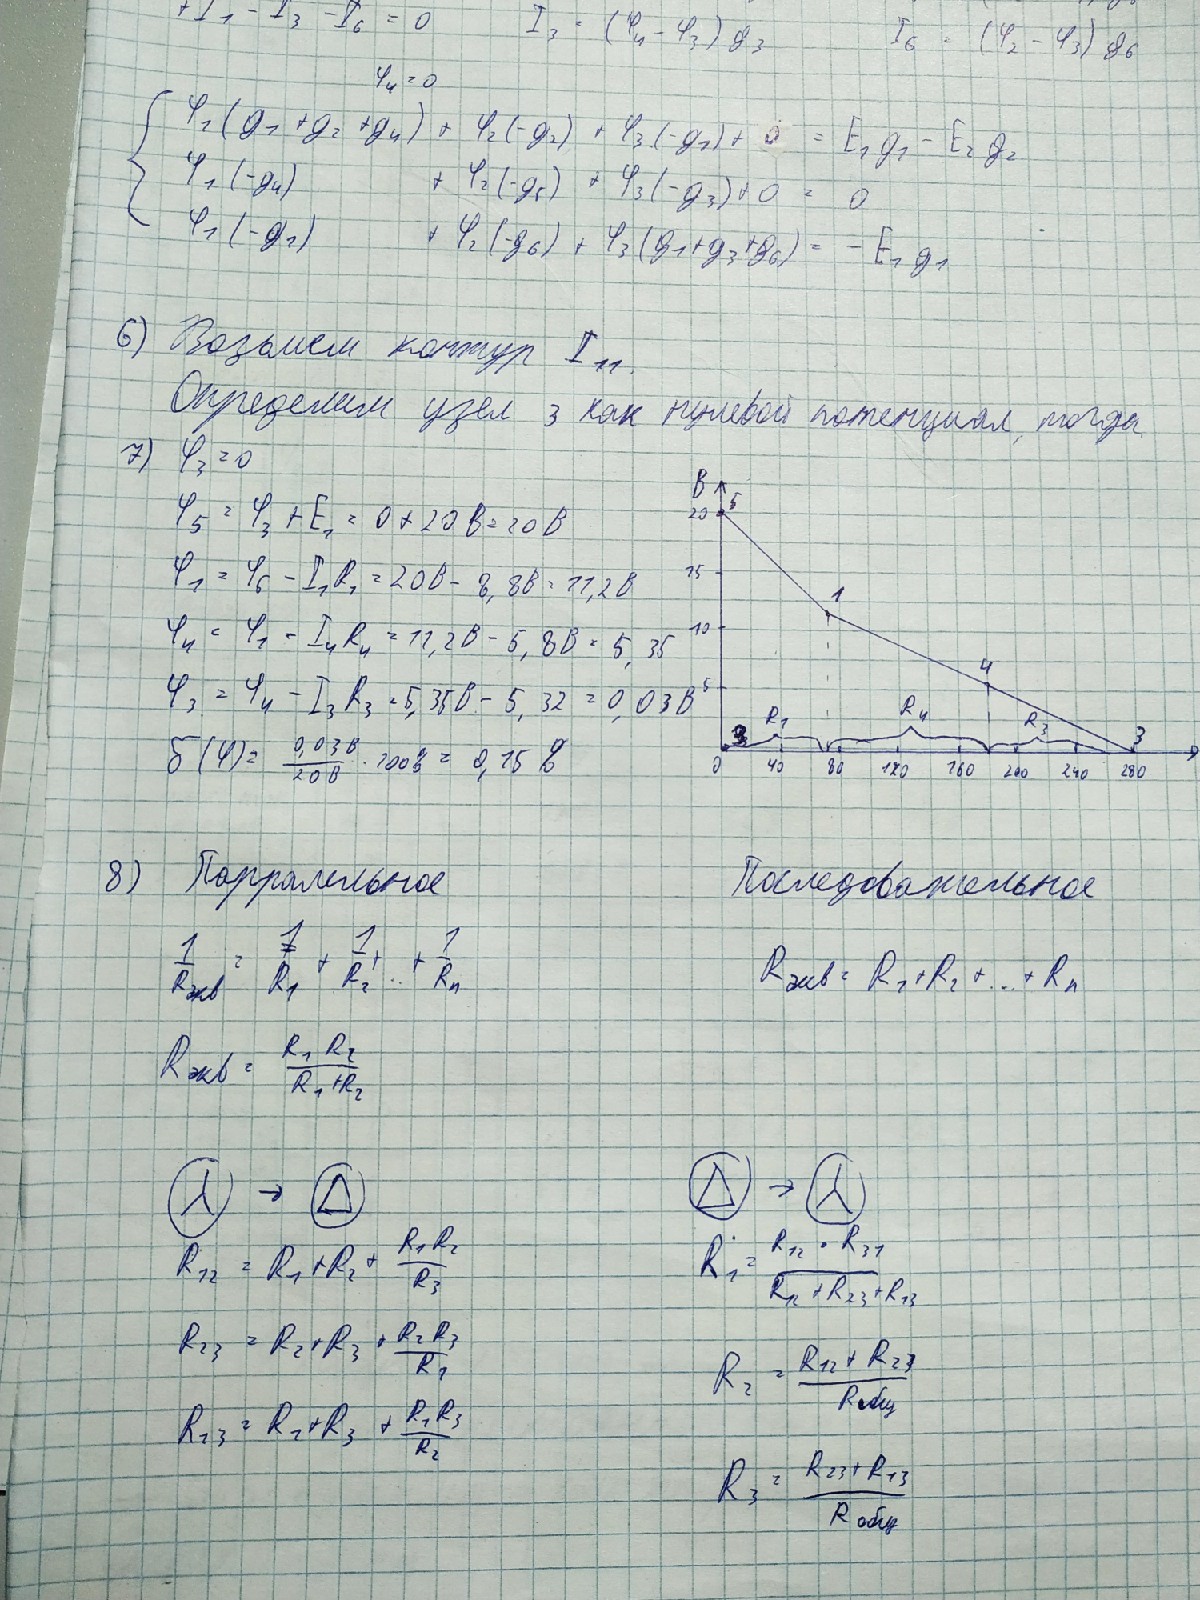 +I₁ - I₃ - I₆ = 0 I₃ = (φ₄ - φ₃) g₃ I₆ = (φ₂ - φ₃) g₆
φ₄ = 0
φ₁(g₁ + g₂ + g₄) + φ₂(-g₂) + φ₃(-g₁) + 0 = E₁g₁ - E₂g₂
φ₁(-g₄) + φ₂(-g₅) + φ₃(-g₃) + 0 = 0
φ₁(-g₁) + φ₂(-g₆) + φ₃(g₁+g₃+g₆) = -E₁g₁
6) Возьмем контур I₁₁.
Определим узел 3 как нулевой потенциал, тогда
7) φ₃ = 0
φ₅ = φ₃ + E₁ = 0 + 20В = 20В
φ₁ = φ₅ - I₁R₁ = 20В - 8,8В = 11,2В
φ₄ = φ₁ - I₄R₄ = 11,2В - 5,8В = 5,35
φ₃ = φ₄ - I₃R₃ = 5,35В - 5,32 = 0,03В
δ(φ) = 0,03В / 20В · 100% = 0,15
В
20
15
10
5
5
1
4
3
3
R₁ R₄ R₃
0 40 80 120 160 200 240 280
8) Парралельное Последовательное
1/Rэкв = 1/R₁ + 1/R₂ + ... + 1/Rₙ Rэкв = R₁ + R₂ + ... + Rₙ
Rэкв = R₁ R₂ / R₁ + R₂
⅄ → Δ Δ → ⅄
R₁₂ = R₁ + R₂ + R₁R₂ / R₃ R₁ = R₁₂ · R₃₁ / R₁₂ + R₂₃ + R₁₃
R₂₃ = R₂ + R₃ + R₂R₃ / R₁ R₂ = R₁₂ + R₂₃ / Rобщ
R₁₃ = R₁ + R₃ + R₁R₃ / R₂ R₃ = R₂₃ + R₁₃ / Rобщ